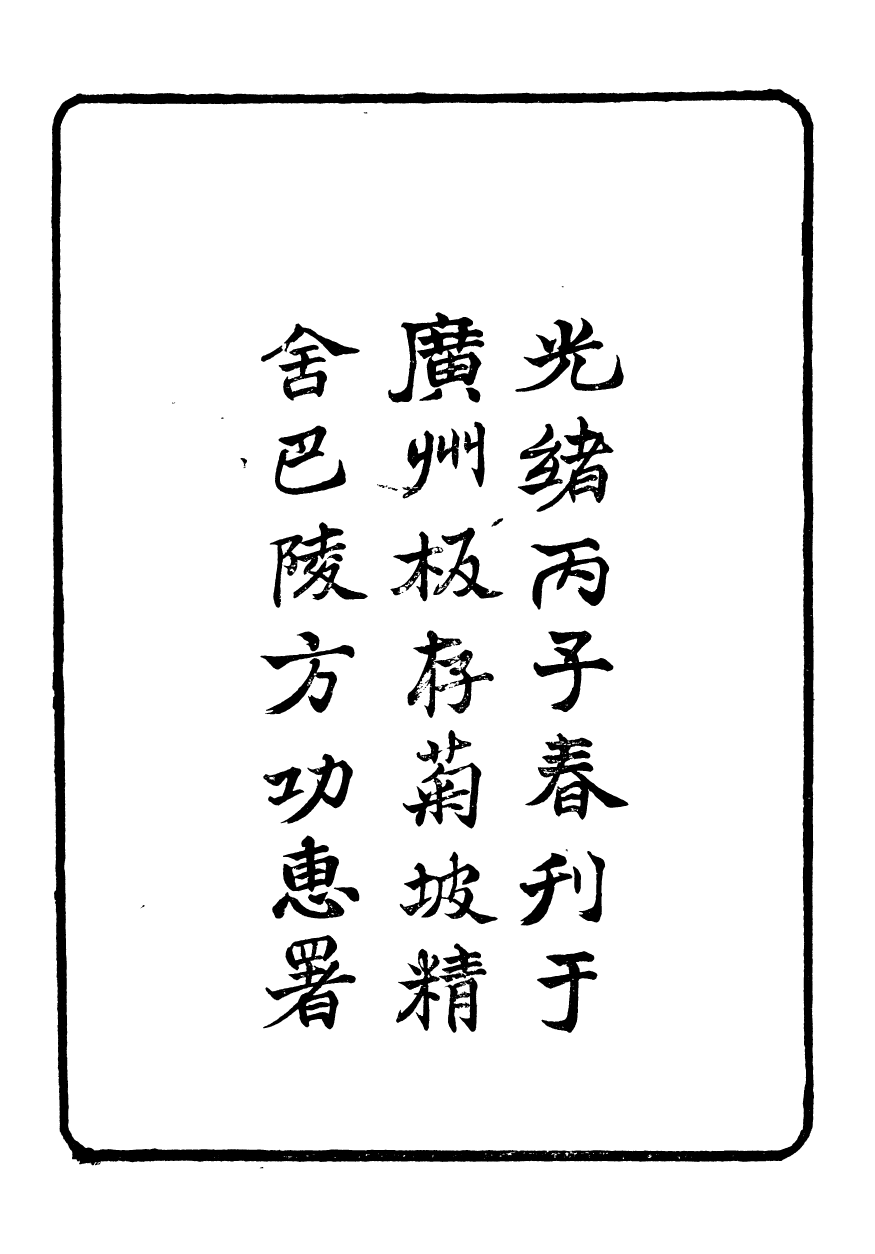 光緒丙子春刋于
廣州板存菊坡精
舍巴陵方功惠署